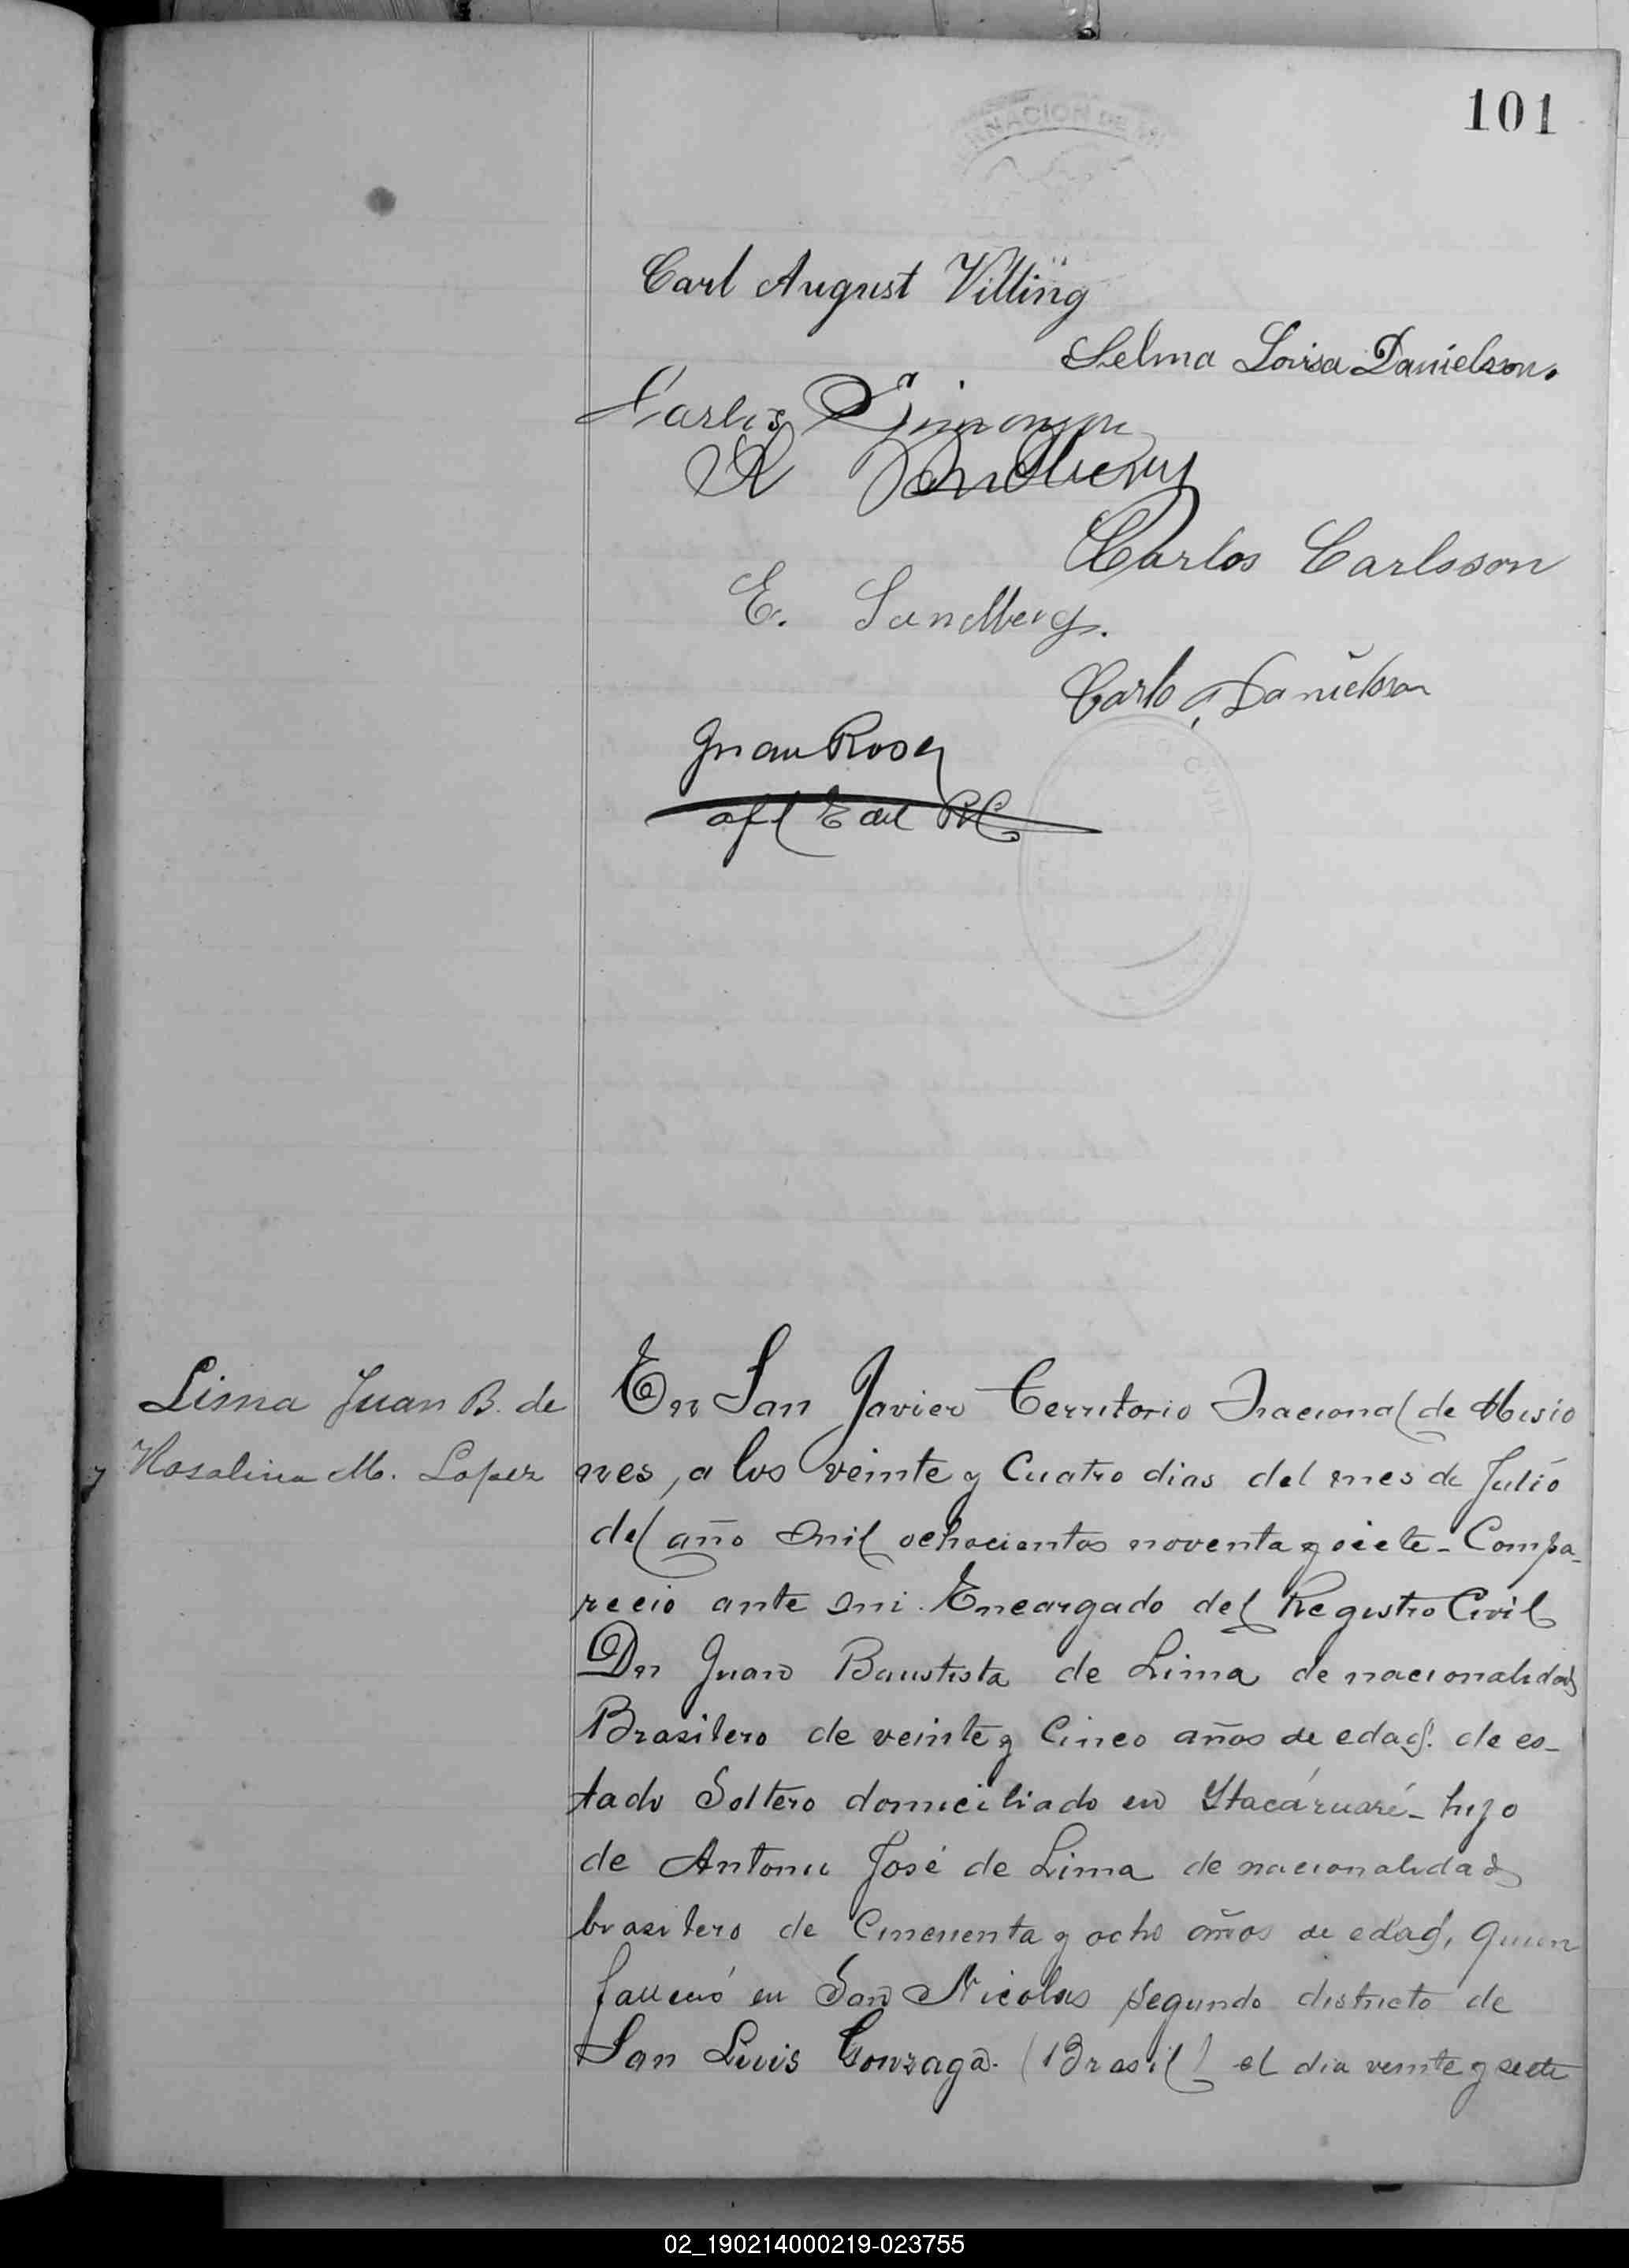 101
NACION DE
Carl August Villing
Selma Lovisa Danielson.
Carlos Simonson
A Sandberg
Carlos Carlsson
E. Sandberg.
Carlos Danielson
Juan Rosa
CIVIL
Lima Juan B. de
y Rosalina M. Lopez
En San Javier Territorio Nacional de Misio
nes, a los veinte y Cuatro dias del mes de Julio
del año mil ochocientos noventa y siete - Compa-
recio ante mi Encargado del Registro Civil
Dn Juan Baustista de Lima de nacionalidad
Brasilero de veinte y Cinco años de edad. de es-
tado Soltero domiciliado en Ytacáruaré - hijo
de Antonio José de Lima de nacionalidad
brasilero de Cincuenta y ocho años de edad, quien
falleció en San Nicolas segundo districto de
San Luis Gonzaga. (Brasil) el dia veinte y siete
02_190214000219-023755